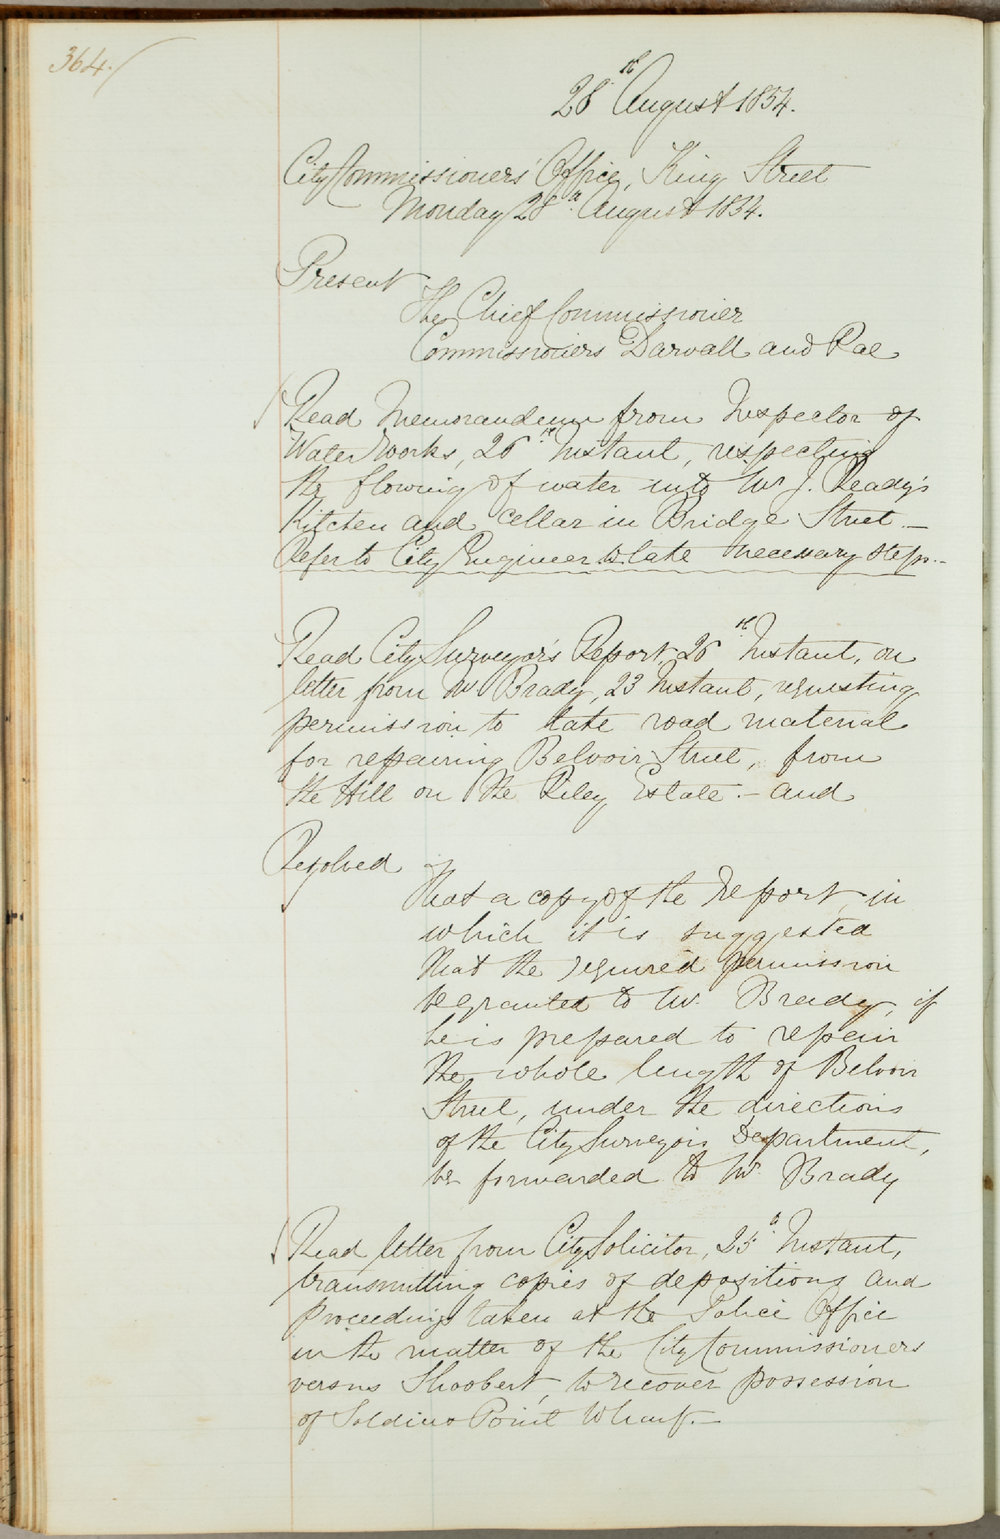 364.
28th August 1854.
City Commissioners' Office, King Street
Monday 28th August 1854.
Present
The Chief Commissioner
Commissioners Darvall and Rae
Read Memorandum from Inspector of
Water Works, 26th Instant, respecting
the flowing of water into Mr J. Ready's
Kitchen and cellar in Bridge Street.—
Refer to City Engineer to take necessary steps.—
Read City Surveyor's Report 26th Instant, on
letter from Mr Brady, 23 Instant, requesting
permission to take road material
for repairing Belvoir Street, from
the Hill on the Riley Estate.— and
Resolved
That a copy of the Report, in
which it is suggested
that the required permission
be granted to Mr. Brady, if
he is prepared to repair
the whole length of Belvoir
Street, under the directions
of the City Surveyors Department,
be forwarded to Mr. Brady
Read letter from City Solicitor, 25th Instant,
transmitting copies of depositions and
proceedings taken at the Police Office
in the matter of the City Commissioners
versus Shoobert, to recover possession
of Soldiers Point Wharf.—